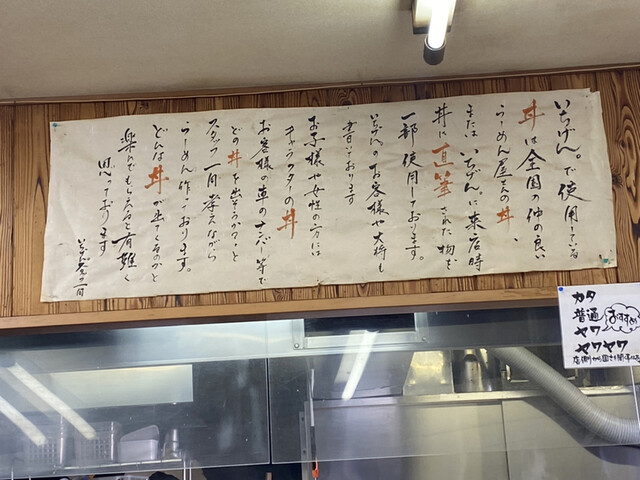 いちげん。で使用している
丼は全国の仲の良い
らーめん屋さんの丼、
または いちげん。に来店時
丼に直筆された物を
一部使用しております。
いちげん。のお客様や大将も
書いております
お子様や女性の方には
キャラクターの丼
お客様の車のナンバー等で
どの丼を出そうか?と
スタッフ一同考えながら
らーめん作っております。
どんな丼が出てくるのかと
楽しんでもらえると有難く
思っております
いちげん。一同
カタ
普通 おすすめ
ヤワ
ヤワヤワ